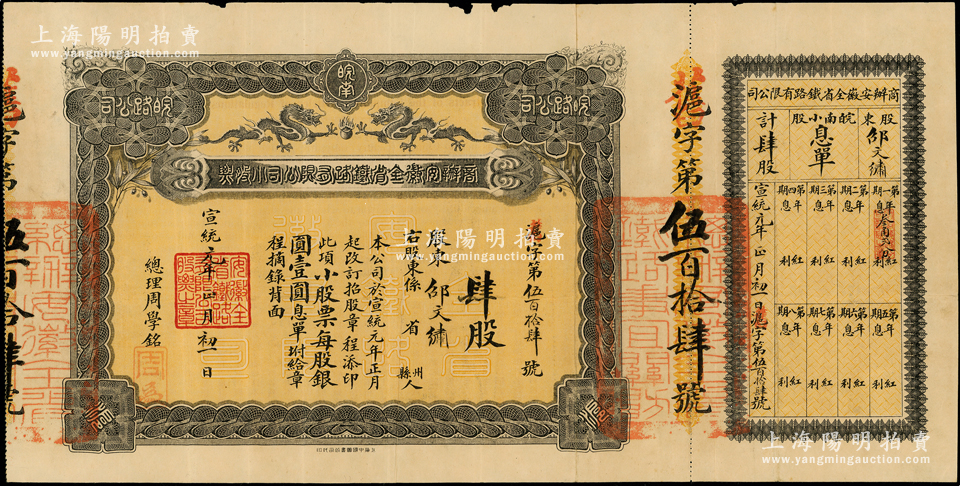 上海陽明拍賣
www.yangmingauction.com
商辦安徽全省鐵路有限公司
股東 皖南小股
邵文繡
息單
計肆股
第一年期息 叁角弍分 紅利
第二年期息 紅利
第三年期息 紅利
第四年期息 紅利
第五年期息 紅利
第六年期息 紅利
第七年期息 紅利
第八年期息 紅利
宣統元年正月初一日滬字第伍百拾肆號
滬字第伍百拾肆號
皖南
皖路公司
皖路公司
商辦安徽全省鐵路有限公司小股票
滬字第伍百拾肆號
肆股
股東邵文繡
右股東係 省 州縣人
本公司於宣統元年正月
起改訂招股章程添印
此項小股票每股銀
圓壹圓息單坿給章
程摘錄背面
宣統元年正月初一日
總理周學銘
安徽全省鐵路有限公司股票之章
滬字第伍百拾肆號
上海中國圖書公司代印
上海陽明拍賣
www.yangmingauction.com